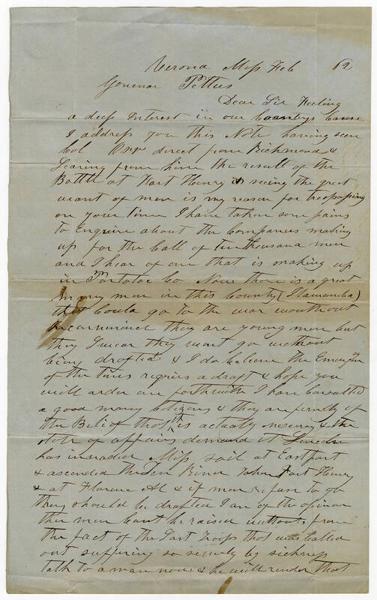 Verona Miss Feb 62
Govenor Pettus
Dear Sir Feeling
a deep Interest in our Countrys Cause
I address you this Note having seen
Col direct from Richmond &
Learing from him the result of the
Battle at Fort Henry & seeing the great
want of men is my reason for trespassing
on your time I have taken some pains
to Enquire about the Companies making
up for the Call of ten thousand men
and I hear of one that is making up
in Pontotoc Co Now there is a great
many men in this County (Itawamba)
that Could go to the war without
they are young men but
they swear they want go without
being drafted & I do believe the Emergency
of the times requires a draft & hope you
will order one forthwith I have consulted
a good many Citizens & they are firmly of
the Belief that it is actually necessary & the
state of affairs demand it Lincoln
has invaded Miss soil at Eastport
& ascended the Tenn River taken Fort Henry
& at Florence Al & if men refuse to go
they should be drafted I am of the opinion
the men cant be raised without, from
the fact of the Last Troops that was called
out suffering so severely by sickness
talk to a man now & he will render that